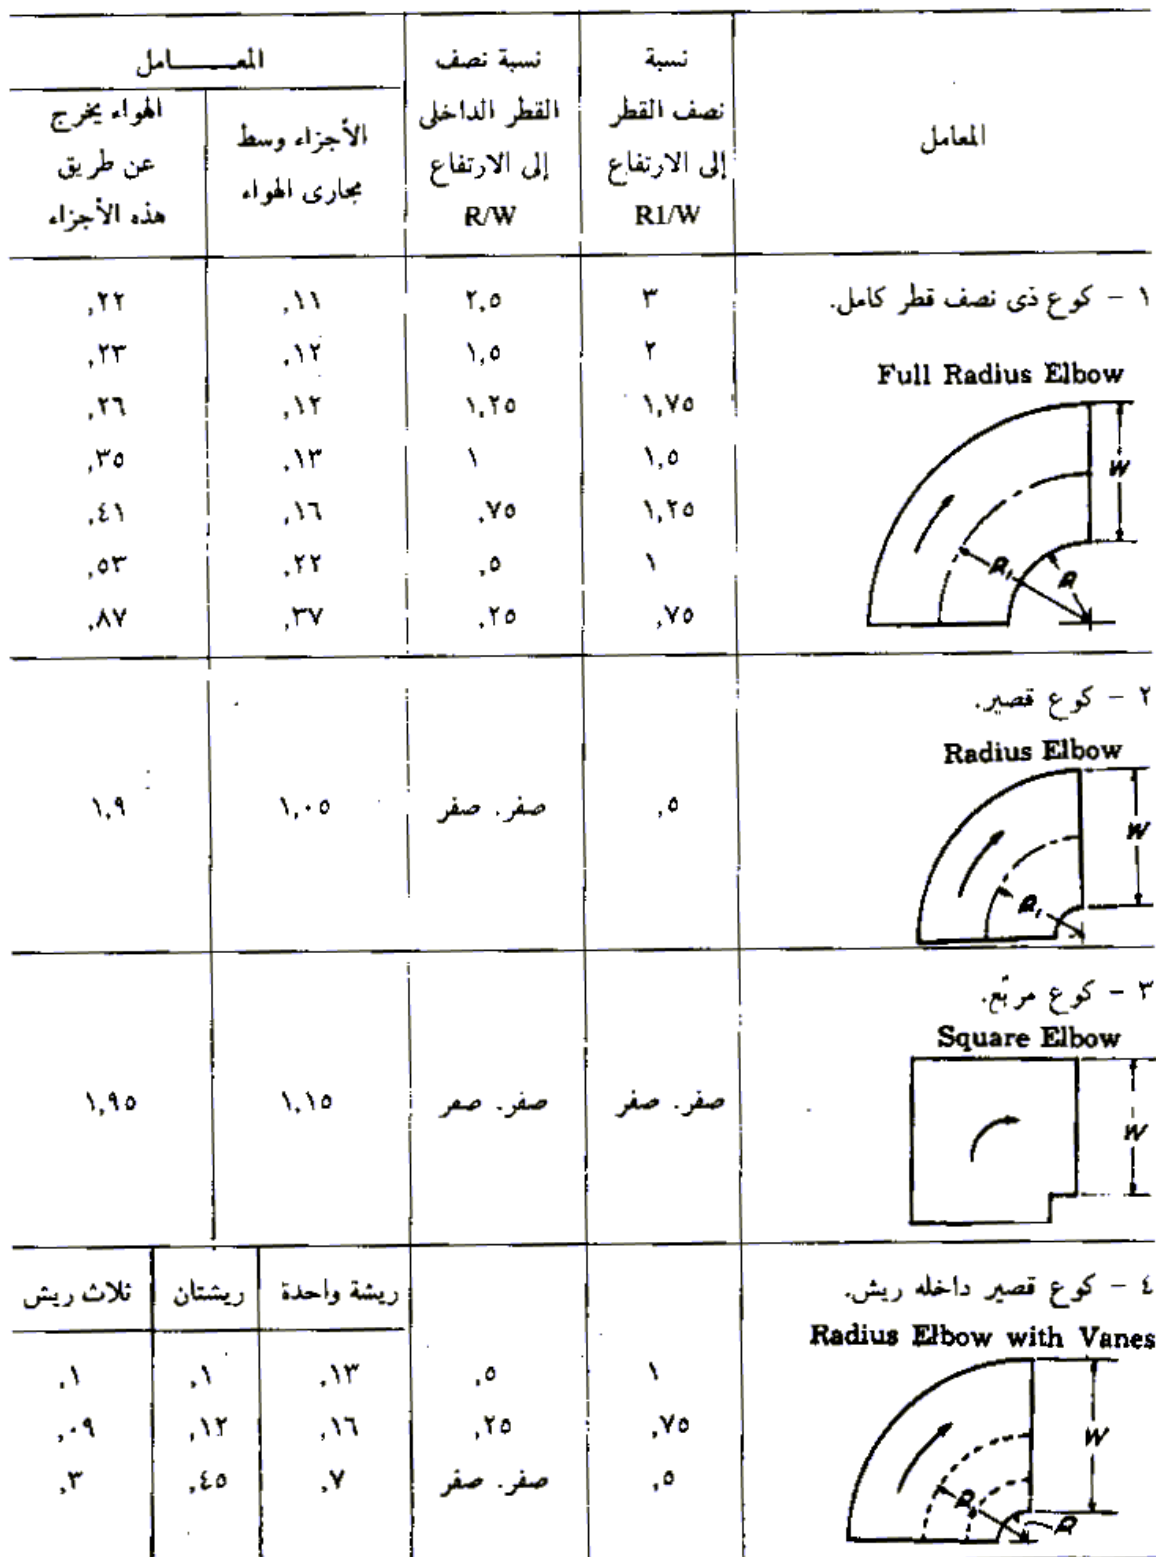 المعامل
نسبة
نصف القطر
إلى الارتفاع
R1/W
نسبة نصف
القطر الداخلى
إلى الارتفاع
R/W
المعـــــامل
الأجزاء وسط
مجارى الهواء
الهواء يخرج
عن طريق
هذه الأجزاء
١ - كوع ذى نصف قطر كامل.
Full Radius Elbow
W
R1
R
٣ ٢,٥ ,١١ ,٢٢
٢ ١,٥ ,١٢ ,٢٣
١,٧٥ ١,٢٥ ,١٢ ,٢٦
١,٥ ١ ,١٣ ,٣٥
١,٢٥ ,٧٥ ,١٦ ,٤١
١ ,٥ ,٢٢ ,٥٣
,٧٥ ,٢٥ ,٣٧ ,٨٧
٢ - كوع قصير.
Radius Elbow
W
R1
,٥ صفر. صفر ١,٠٥ ١,٩
٣ - كوع مربّع.
Square Elbow
W
صفر. صفر صفر. صفر ١,١٥ ١,٩٥
٤ - كوع قصير داخله ريش.
Radius Elbow with Vanes
W
R
R
ريشة واحدة ريشتان ثلاث ريش
١ ,٥ ,١٣ ,١ ,١
,٧٥ ,٢٥ ,١٦ ,١٢ ,٠٩
,٥ صفر. صفر ,٧ ,٤٥ ,٣